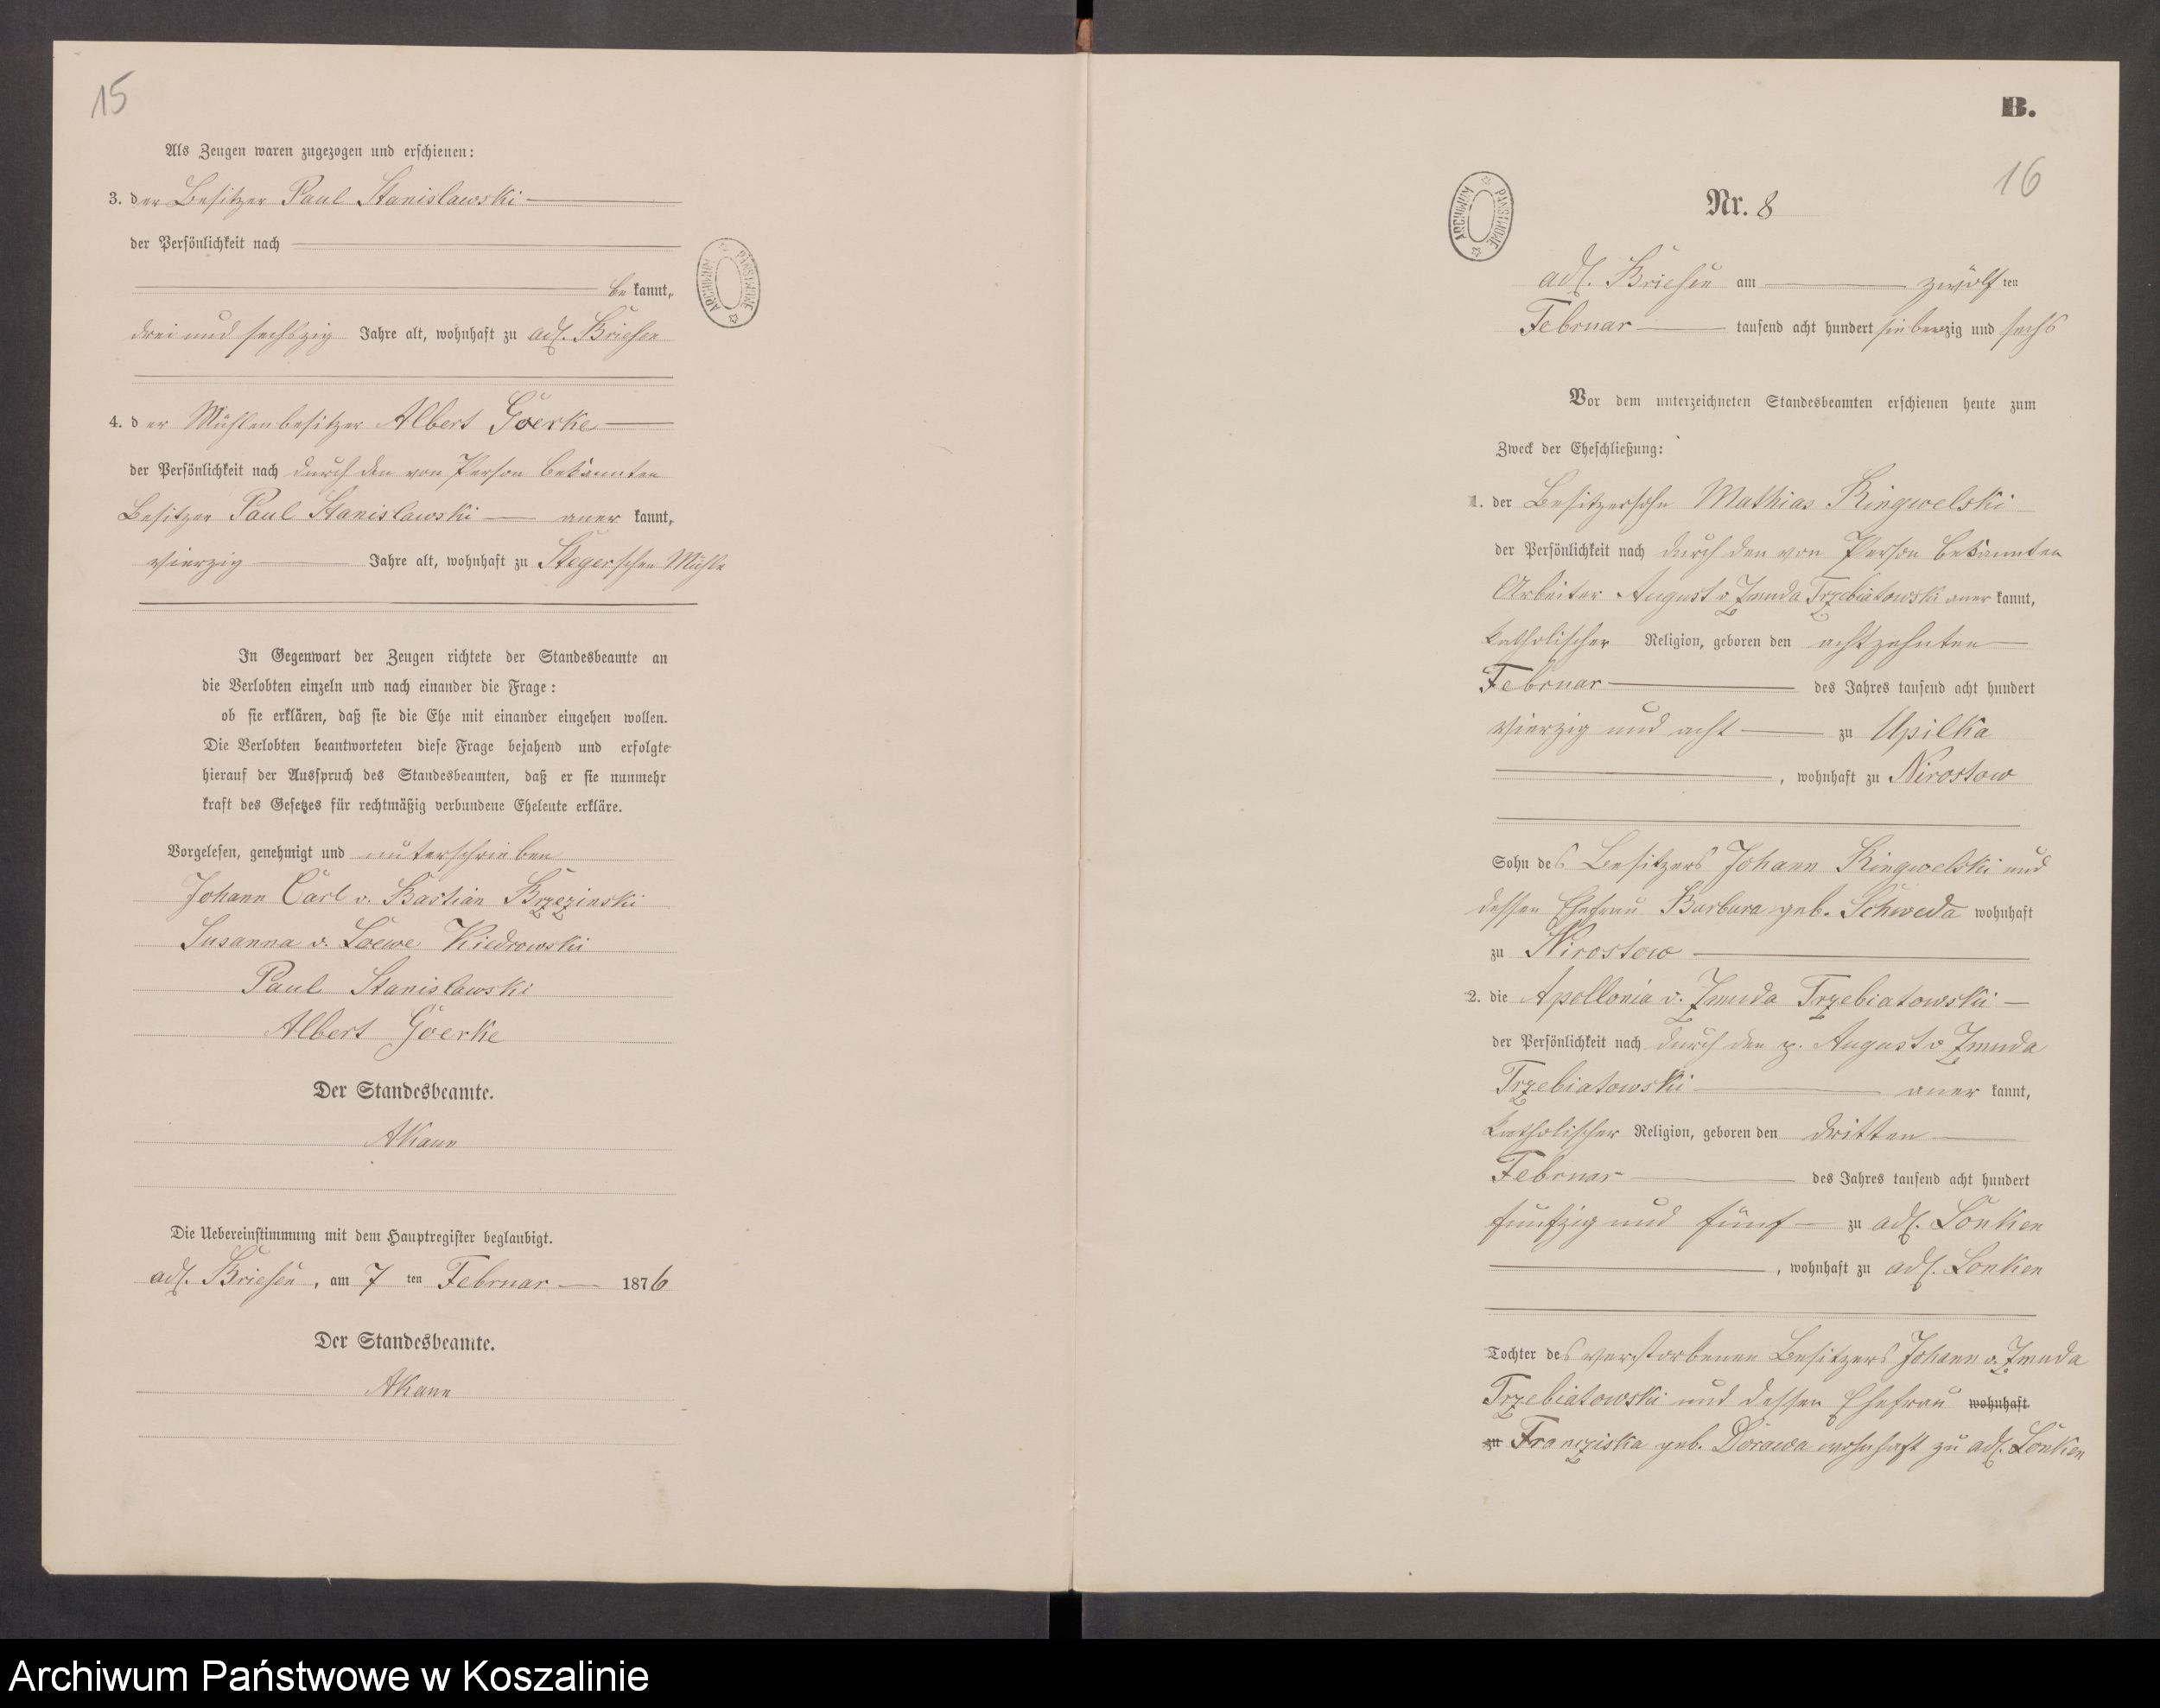 15
Als Zeugen waren zugezogen und erschienen:
3. der Besitzer Paul Stanislawski
der Persönlichkeit nach
be kannt,
drei und sechszig Jahre alt, wohnhaft zu adl. Briesen
4. der Mühlenbesitzer Albert Goerke
der Persönlichkeit nach durch den von Person bekannten
Besitzer Paul Stanislawski aner kannt,
vierzig Jahre alt, wohnhaft zu Stegerschen Mühle
In Gegenwart der Zeugen richtete der Standesbeamte an
die Verlobten einzeln und nach einander die Frage:
ob sie erklären, daß sie die Ehe mit einander eingehen wollen.
Die Verlobten beantworteten diese Frage bejahend und erfolgte
hierauf der Ausspruch des Standesbeamten, daß er sie nunmehr
kraft des Gesetzes für rechtmäßig verbundene Eheleute erkläre.
Vorgelesen, genehmigt und unterschrieben
Johann Carl v. Bastian Brzezinski
Susanna v. Loewe Kiedrowski
Paul Stanislawski
Albert Goerke
Der Standesbeamte.
AKann
Die Uebereinstimmung mit dem Hauptregister beglaubigt.
adl. Briesen, am 7 ten Februar 1876
Der Standesbeamte.
AKann
ARCHIWUM PAŃSTWOWE
B.
16
ARCHIWUM PAŃSTWOWE
Nr. 8
adl. Briesen am zwölf ten
Februar tausend acht hundert siebenzig und sechs
Vor dem unterzeichneten Standesbeamten erschienen heute zum
Zweck der Eheschließung:
1. der Besitzersohn Mathias Ringwelski
der Persönlichkeit nach durch den von Person bekannten
Arbeiter August v Zmuda Trzebiatowski aner kannt,
katholischer Religion, geboren den achtzehnten
Februar des Jahres tausend acht hundert
vierzig und acht zu Upilka
, wohnhaft zu Nirostow
Sohn des Besitzers Johann Ringwelski und
dessen Ehefrau Barbara geb. Schweda wohnhaft
zu Nirostow
2. die Apollonia v. Zmuda Trzebiatowski
der Persönlichkeit nach durch den p. August v Zmuda
Trzebiatowski aner kannt,
katholischer Religion, geboren den dritten
Februar des Jahres tausend acht hundert
fünfzig und fünf zu adl. Lonken
, wohnhaft zu adl. Lonken
Tochter des verstorbenen Besitzers Johann v. Zmuda
Trzebiatowski und dessen Ehefrau wohnhaft
zu Franziska geb. Dorawa wohnhaft zu adl. Lonken
Archiwum Państwowe w Koszalinie